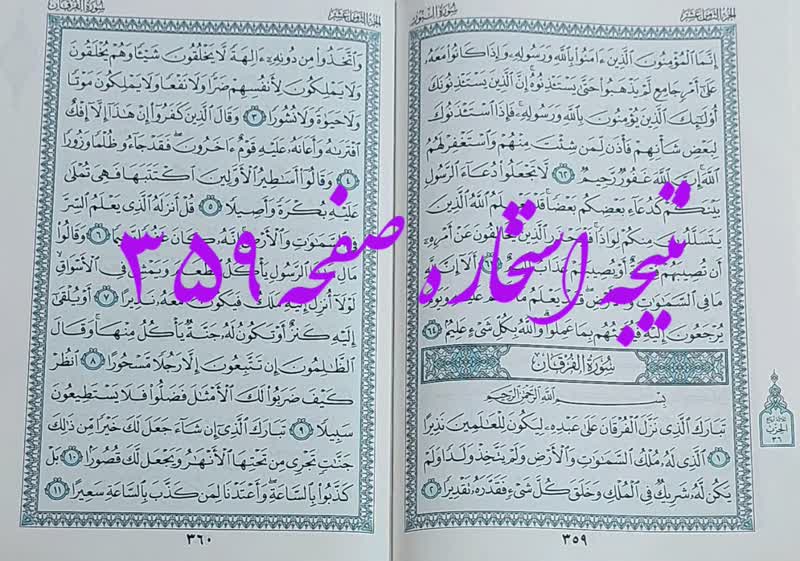 سُورَةُ النُّورِ
الجزء الثامن عشر
إِنَّمَا الْمُؤْمِنُونَ الَّذِينَ ءَامَنُوا بِاللَّهِ وَرَسُولِهِ وَإِذَا كَانُوا مَعَهُ
عَلَىٰ أَمْرٍ جَامِعٍ لَّمْ يَذْهَبُوا حَتَّىٰ يَسْتَئْذِنُوهُ إِنَّ الَّذِينَ يَسْتَئْذِنُونَكَ
أُولَٰئِكَ الَّذِينَ يُؤْمِنُونَ بِاللَّهِ وَرَسُولِهِ فَإِذَا اسْتَئْذَنُوكَ
لِبَعْضِ شَأْنِهِمْ فَأْذَن لِّمَن شِئْتَ مِنْهُمْ وَاسْتَغْفِرْ لَهُمُ
اللَّهَ إِنَّ اللَّهَ غَفُورٌ رَّحِيمٌ ٦٢ لَّا تَجْعَلُوا دُعَاءَ الرَّسُولِ
بَيْنَكُمْ كَدُعَاءِ بَعْضِكُم بَعْضًا قَدْ يَعْلَمُ اللَّهُ الَّذِينَ
يَتَسَلَّلُونَ مِنكُمْ لِوَاذًا فَلْيَحْذَرِ الَّذِينَ يُخَالِفُونَ عَنْ أَمْرِهِ
أَن تُصِيبَهُمْ أَوْ يُصِيبَهُمْ عَذَابٌ أَلَا إِنَّ لِلَّهِ
مَا فِي السَّمَٰوَٰتِ وَالْأَرْضِ قَدْ يَعْلَمُ مَا عَلَيْهِ وَيَوْمَ
يُرْجَعُونَ إِلَيْهِ فَيُنَبِّئُهُم بِمَا عَمِلُوا وَاللَّهُ بِكُلِّ شَيْءٍ عَلِيمٌ ٦٤
سُورَةُ الْفُرْقَانِ
بِسْمِ اللَّهِ الرَّحْمَٰنِ الرَّحِيمِ
تَبَارَكَ الَّذِي نَزَّلَ الْفُرْقَانَ عَلَىٰ عَبْدِهِ لِيَكُونَ لِلْعَٰلَمِينَ نَذِيرًا
١ الَّذِي لَهُ مُلْكُ السَّمَٰوَٰتِ وَالْأَرْضِ وَلَمْ يَتَّخِذْ وَلَدًا وَلَمْ
يَكُن لَّهُ شَرِيكٌ فِي الْمُلْكِ وَخَلَقَ كُلَّ شَيْءٍ فَقَدَّرَهُ تَقْدِيرًا ٢
الحزب
٣٦
٣٥٩
سُورَةُ الْفُرْقَانِ
الجزء الثامن عشر
وَاتَّخَذُوا مِن دُونِهِ ءَالِهَةً لَّا يَخْلُقُونَ شَيْئًا وَهُمْ يُخْلَقُونَ
وَلَا يَمْلِكُونَ لِأَنفُسِهِمْ ضَرًّا وَلَا نَفْعًا وَلَا يَمْلِكُونَ مَوْتًا
وَلَا حَيَوٰةً وَلَا نُشُورًا ٣ وَقَالَ الَّذِينَ كَفَرُوا إِنْ هَٰذَا إِلَّا إِفْكٌ
افْتَرَىٰهُ وَأَعَانَهُ عَلَيْهِ قَوْمٌ ءَاخَرُونَ فَقَدْ جَاءُو ظُلْمًا وَزُورًا
٤ وَقَالُوا أَسَٰطِيرُ الْأَوَّلِينَ اكْتَتَبَهَا فَهِيَ تُمْلَىٰ
عَلَيْهِ بُكْرَةً وَأَصِيلًا ٥ قُلْ أَنزَلَهُ الَّذِي يَعْلَمُ السِّرَّ
فِي السَّمَٰوَٰتِ وَالْأَرْضِ إِنَّهُ كَانَ ٦ وَقَالُوا
مَالِ الرَّسُولِ يَأْكُلُ الطَّعَامَ وَيَمْشِي فِي الْأَسْوَاقِ
لَوْلَا أُنزِلَ إِلَيْهِ مَلَكٌ فَيَكُونَ مَعَهُ نَذِيرًا ٧ أَوْ يُلْقَىٰ
إِلَيْهِ كَنزٌ أَوْ تَكُونُ لَهُ جَنَّةٌ يَأْكُلُ مِنْهَا وَقَالَ
الظَّٰلِمُونَ إِن تَتَّبِعُونَ إِلَّا رَجُلًا مَّسْحُورًا ٨ انظُرْ
كَيْفَ ضَرَبُوا لَكَ الْأَمْثَٰلَ فَضَلُّوا فَلَا يَسْتَطِيعُونَ
سَبِيلًا ٩ تَبَارَكَ الَّذِي إِن شَاءَ جَعَلَ لَكَ خَيْرًا مِّن ذَٰلِكَ
جَنَّٰتٍ تَجْرِي مِن تَحْتِهَا الْأَنْهَٰرُ وَيَجْعَل لَّكَ قُصُورًا ١٠ بَلْ
كَذَّبُوا بِالسَّاعَةِ وَأَعْتَدْنَا لِمَن كَذَّبَ بِالسَّاعَةِ سَعِيرًا ١١
٣٦٠
نتیجه استخاره صفحه ۳۵۹